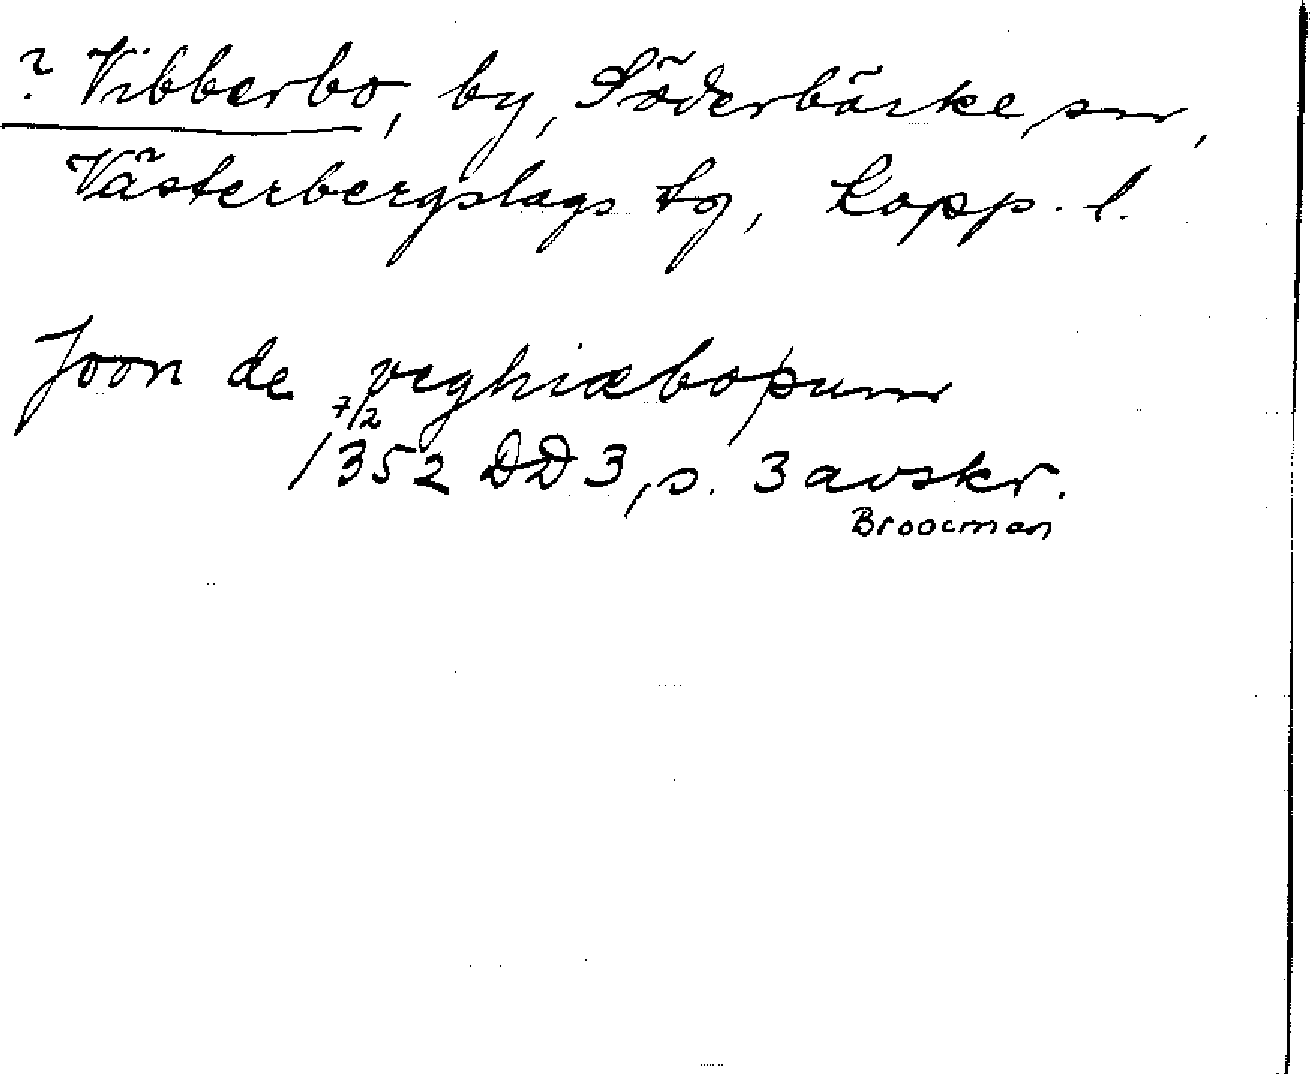 ? Vibberbo, by, Söderbärke sn,
Västerbergslags tg, Kopp. l.
Joon de veghiæboþum
7/2
1352 DD 3, s. 3 avskr.
Broocman